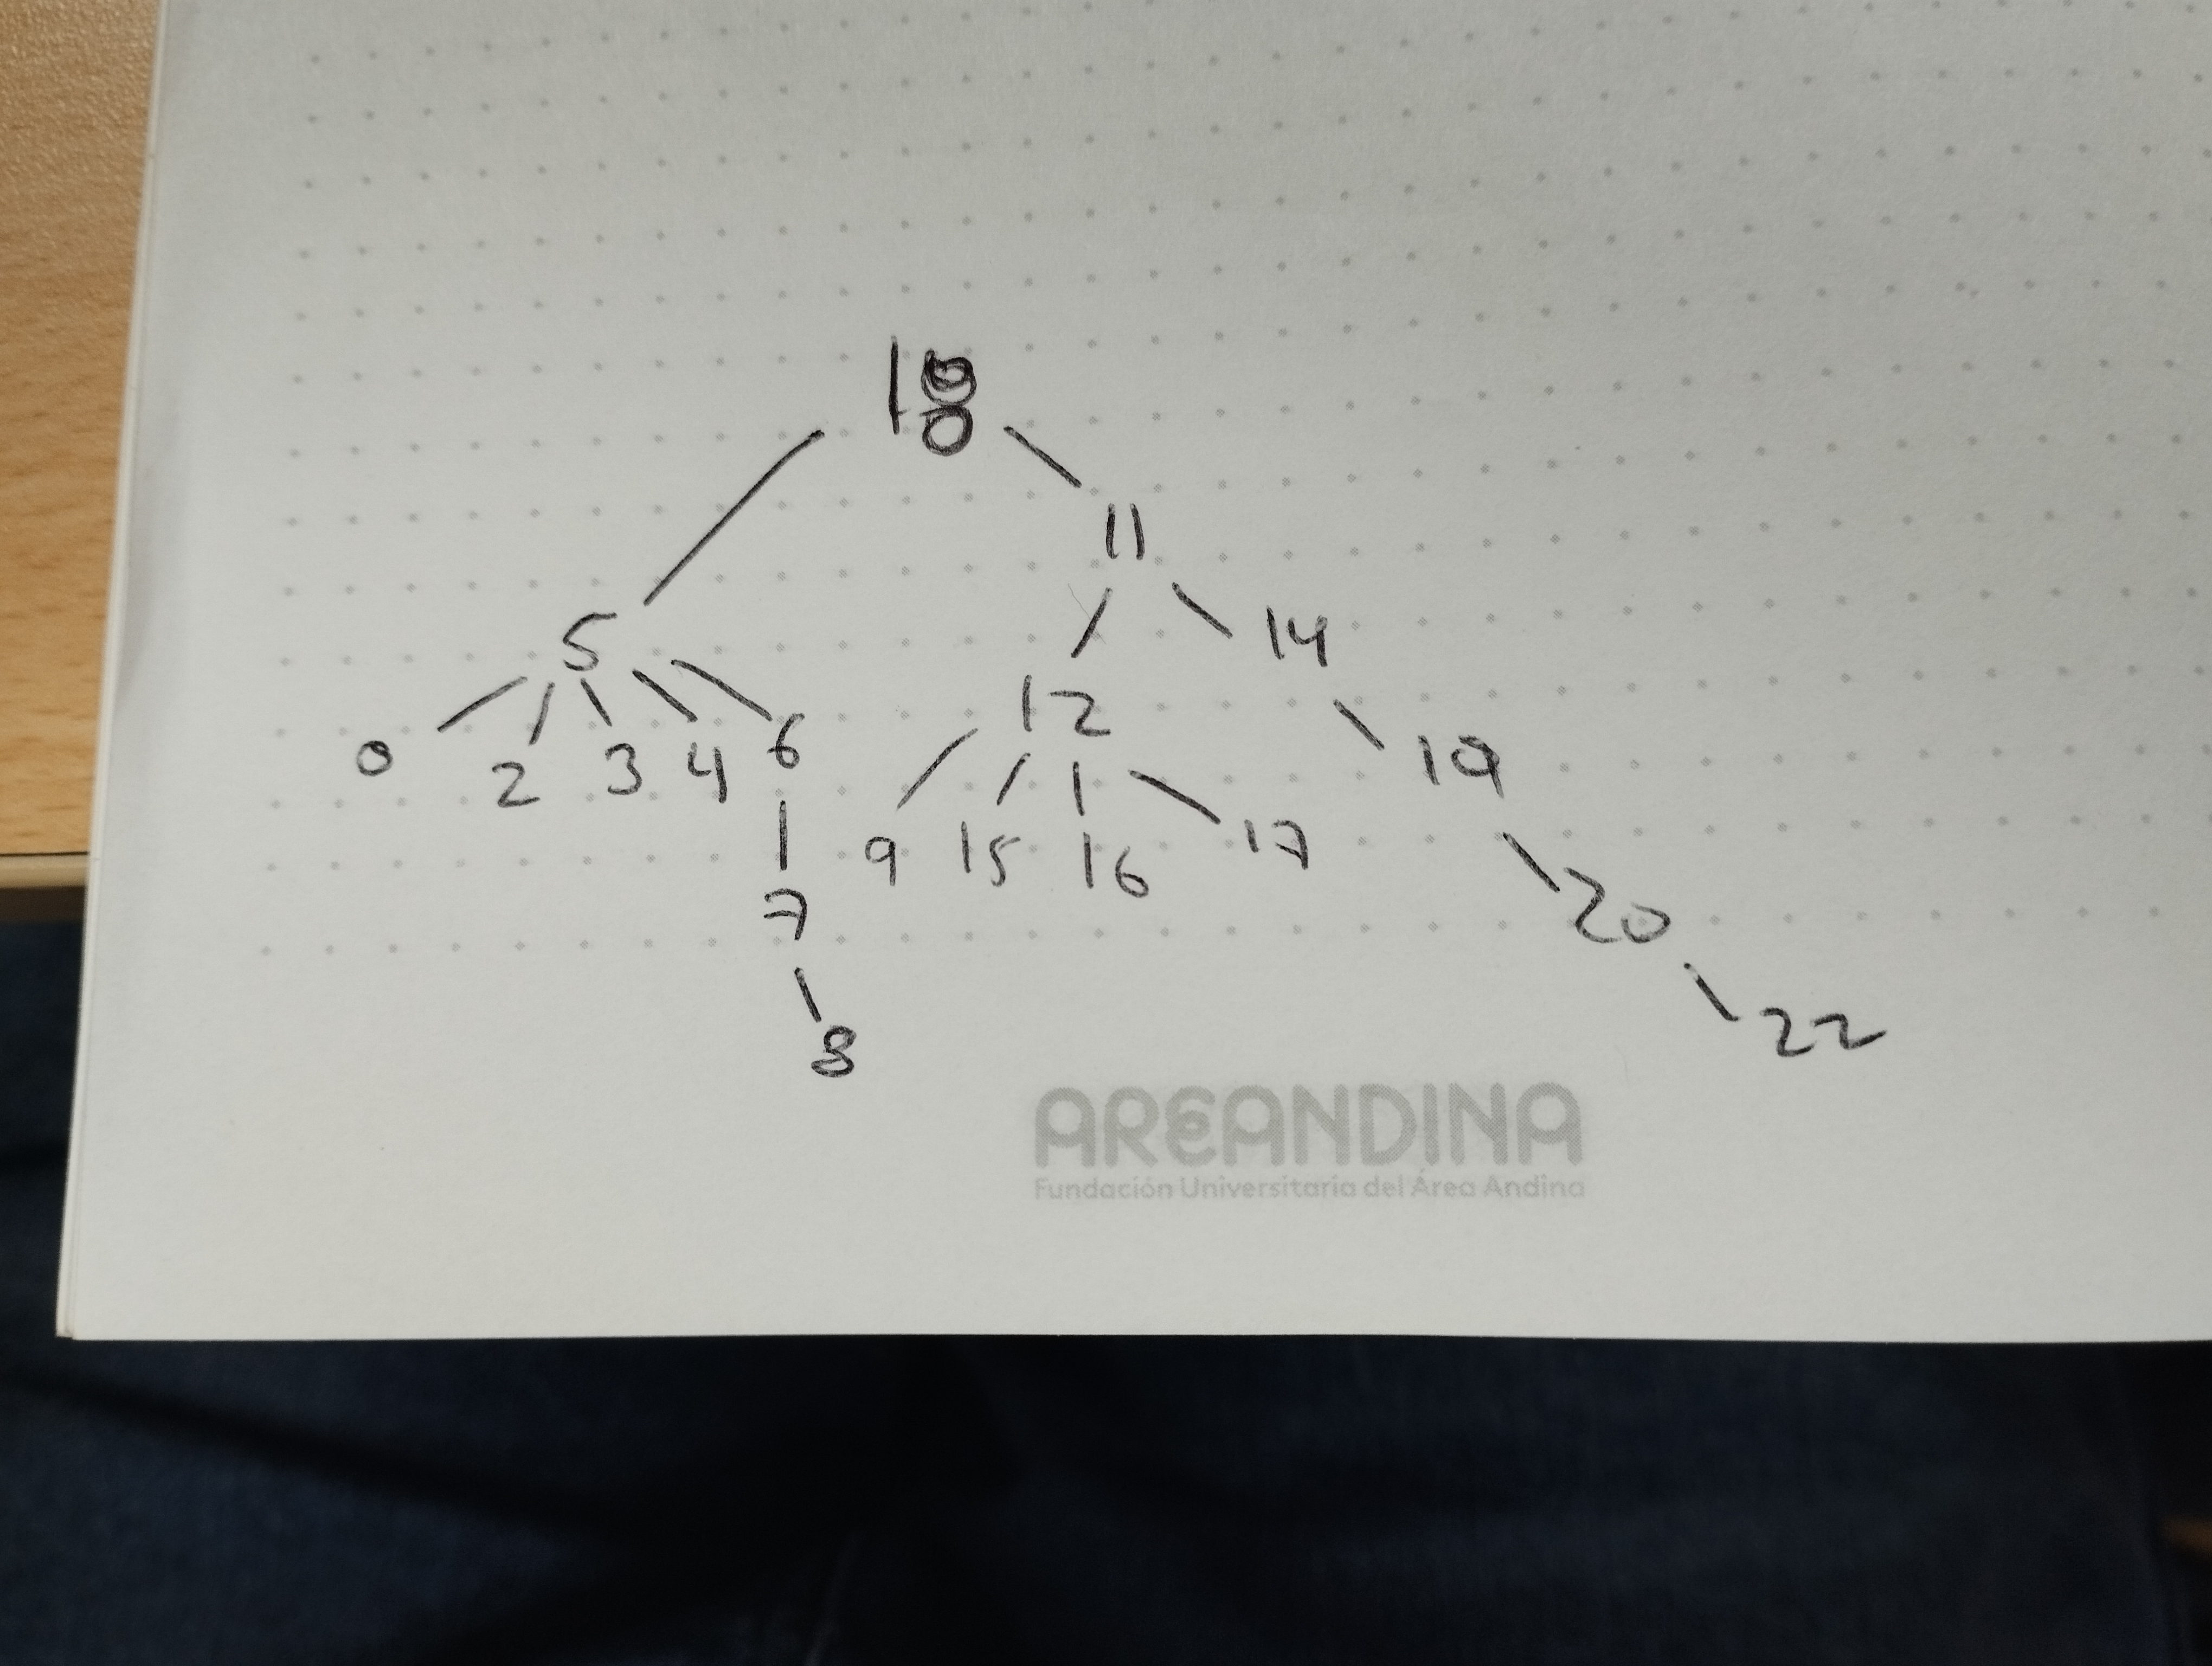 18
11
5 14
12
0 2 3 4 6 19
9 15 16 17
7 20
8 22
AREANDINA
Fundación Universitaria del Área Andina